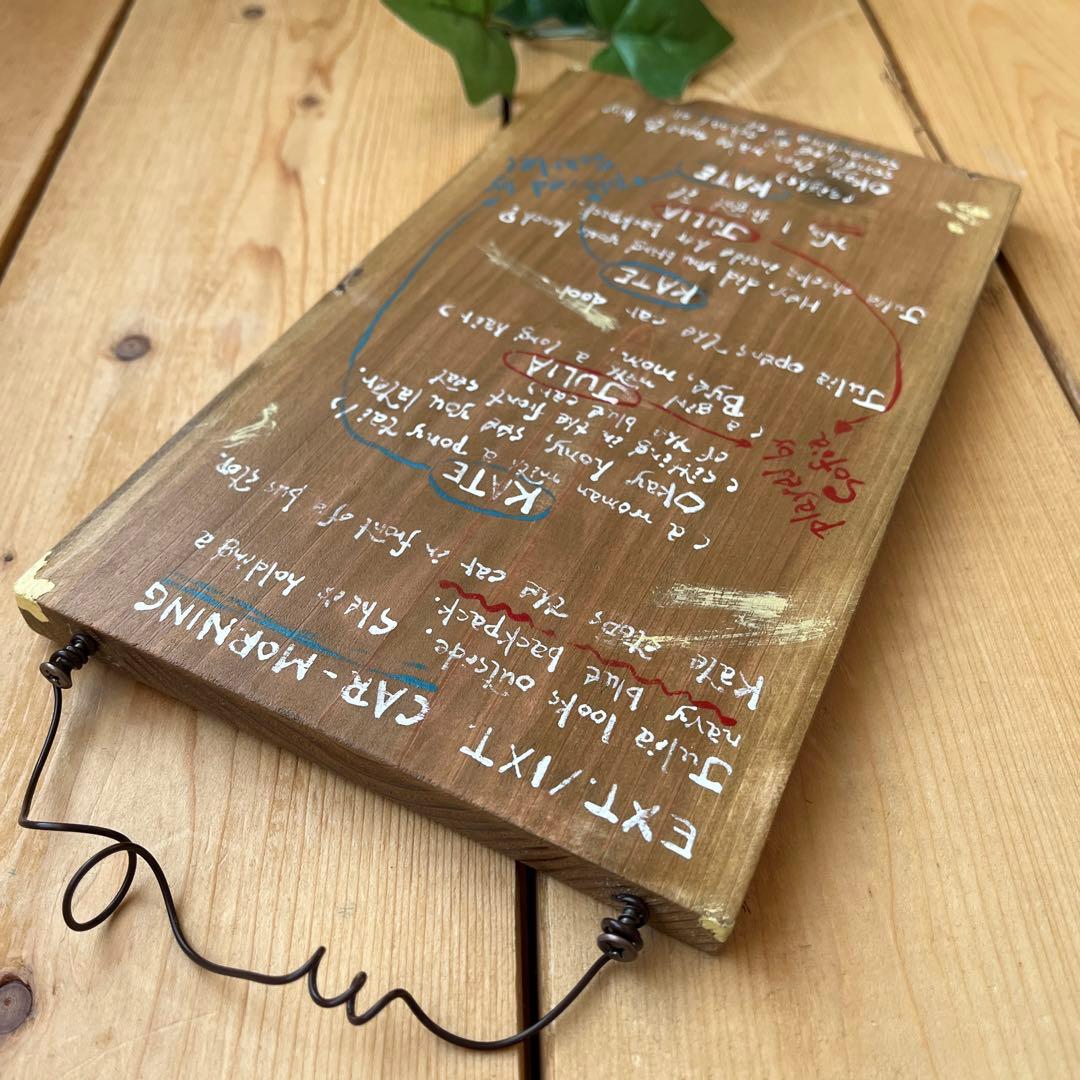 EXT./IXT. CAR-MORNING
Julia looks outside. She is holding a
navy blue backpack.
Kate stops the car in front of a bus stop.
KATE
(a woman with a pony tail)
Okay hony, see you later.
(sitting in the front seat
of the blue car)
JULIA
(a girl with a long hair)
Bye, mom.
Julia opens the car door.
KATE
Hey, did you bring your lunch?
Julia checks inside her backpack.
JULIA
No, I forgot it
KATE
(sighs)
Okay.
played by
Sofia
played by